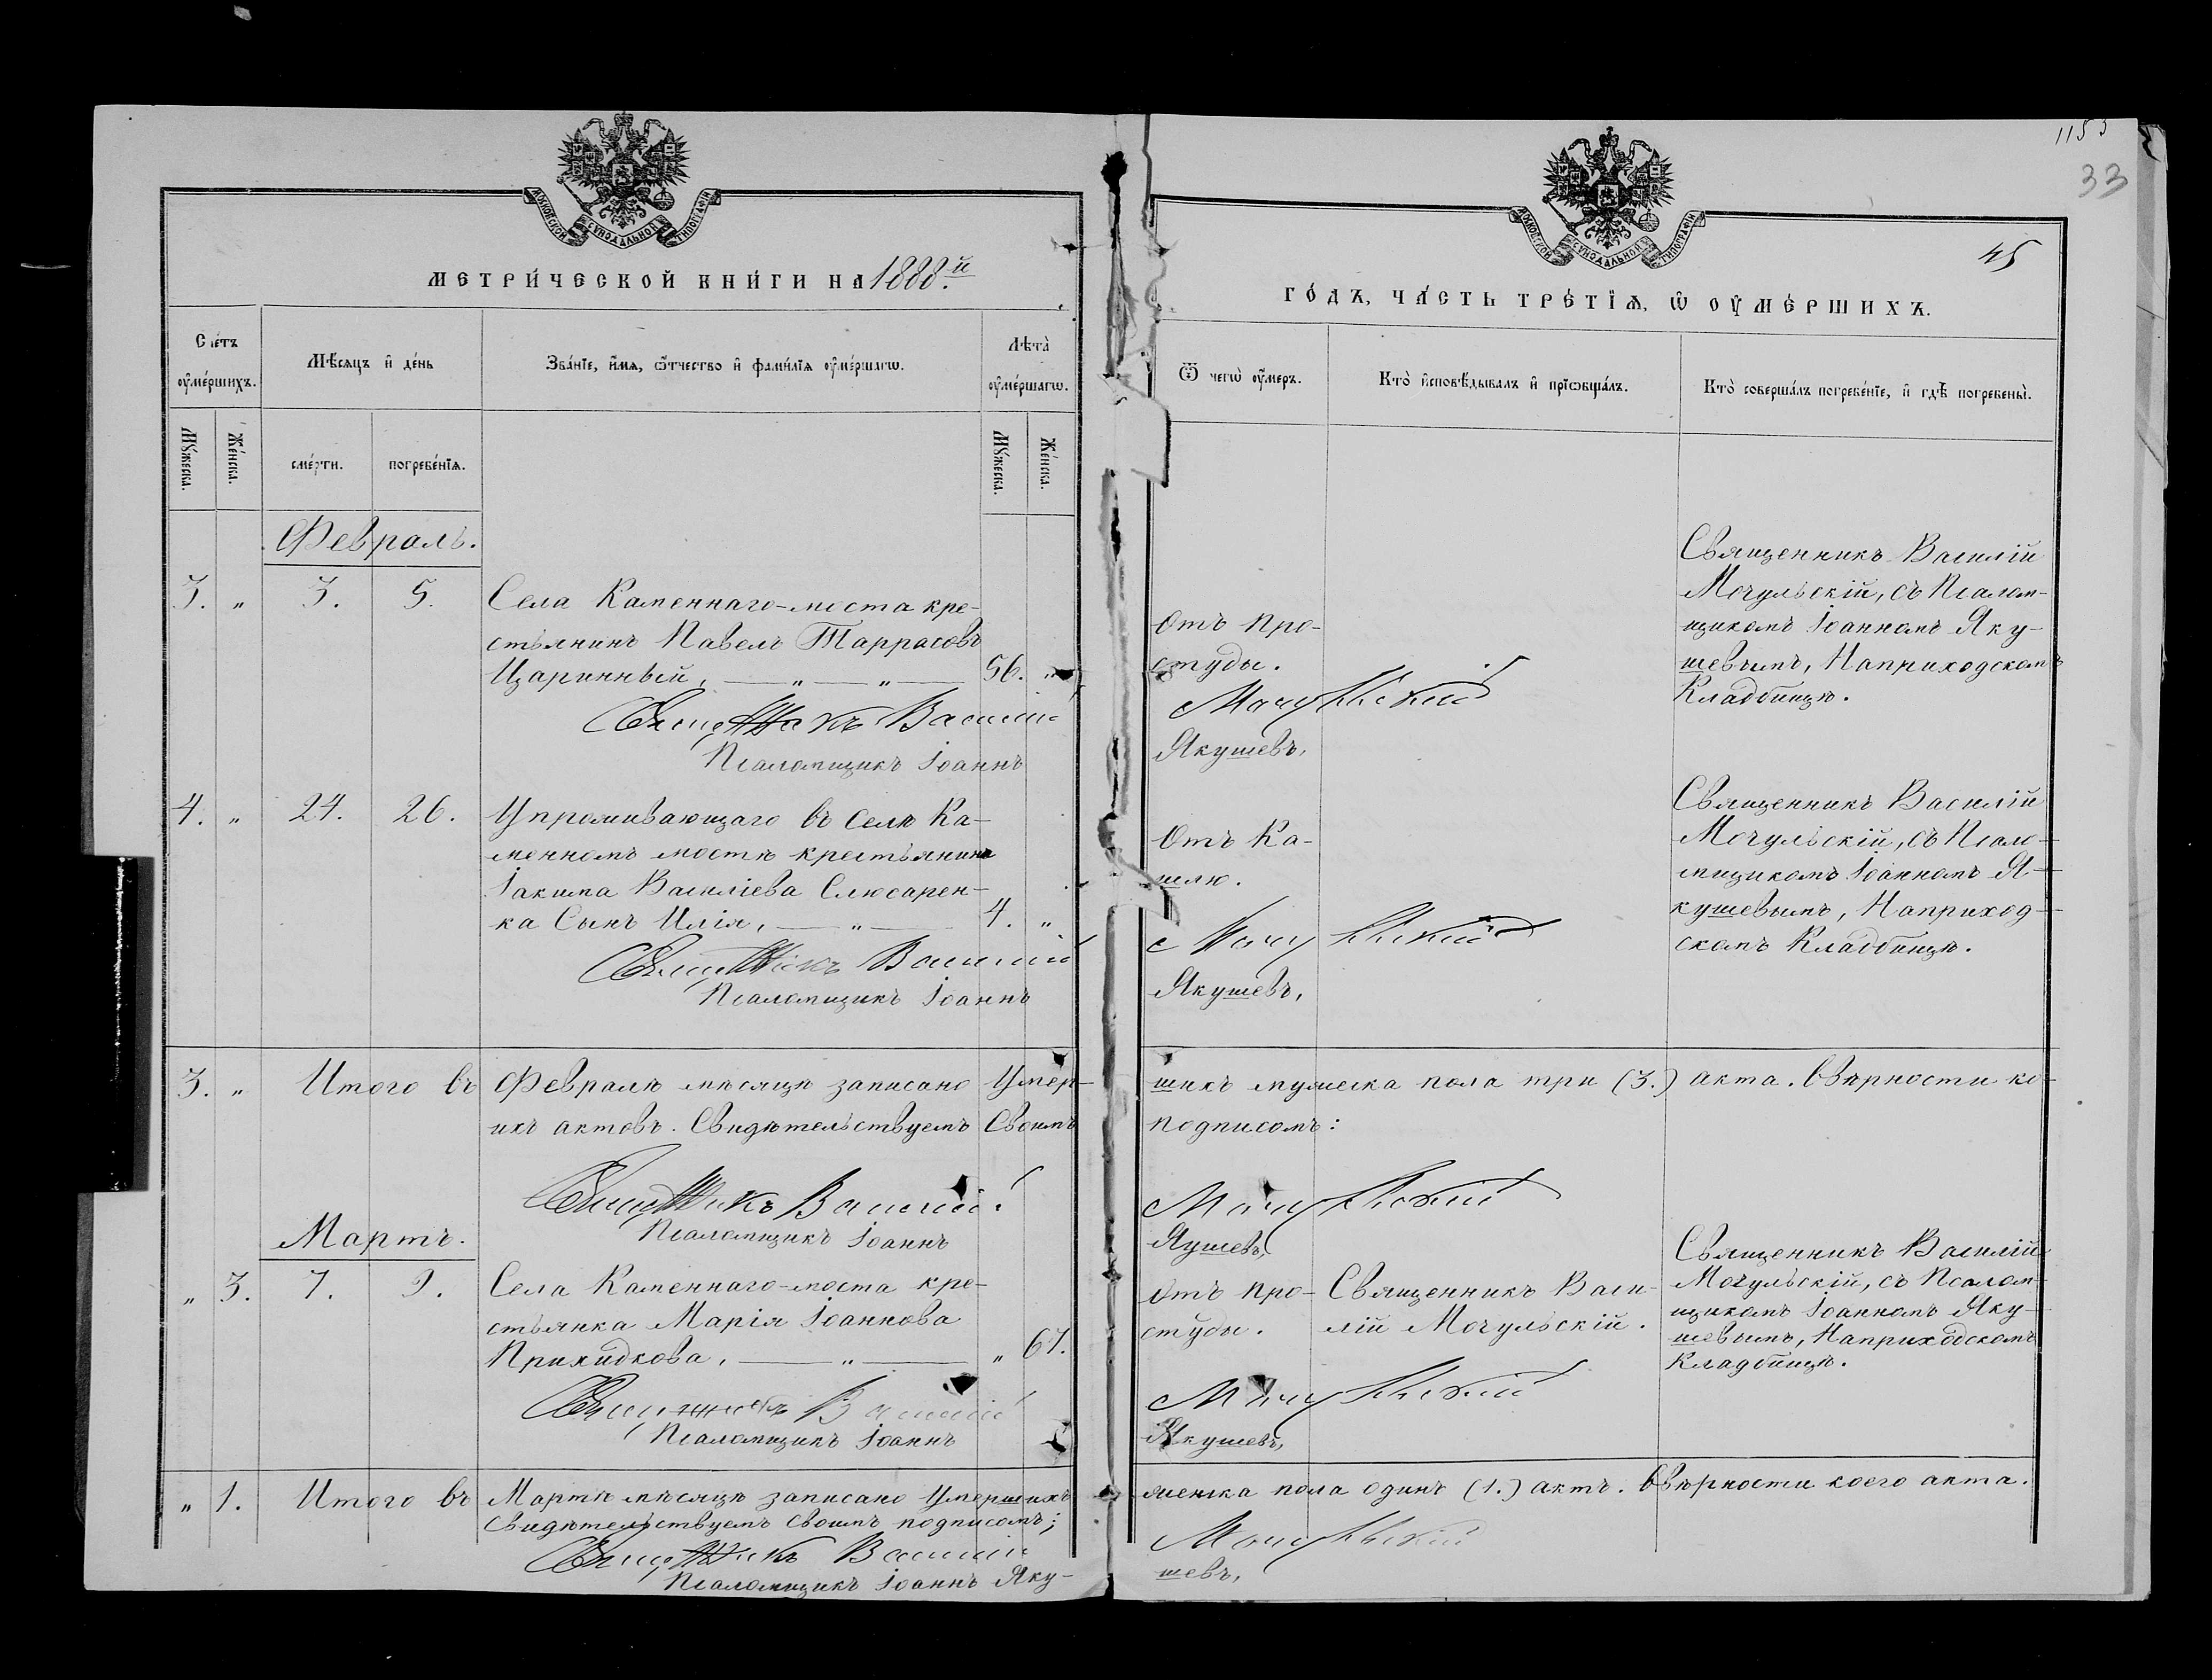 1153
33
45
МОСКОВСКОЙ СѴНОДАЛЬНОЙ ТИПОГРАФІИ
МЕТРИ́ЧЕСКОЙ КНИ́ГИ НА 1888.й
Сче́тъ ᲂу҆ме́ршихъ.
Мѣ́сяцъ и҆ де́нь
Зва́нїе, и҆́мѧ, ѻ҆́тчество и҆ фами́лїѧ ᲂу҆ме́ршагѡ.
Лѣта̀ ᲂу҆ме́ршагѡ.
Мꙋ́жеска.
Же́нска.
сме́рти.
погребе́нїѧ.
Мꙋ́жеска.
Же́нска.
Февраль.
3. „ 3. 5. Села Каменнаго-моста кре-
стьянинъ Павелъ Таррасовъ
Царинный, — „ — „ — 56. „
Священникъ Василій
Псаломщикъ Іоаннъ
4. „ 24. 26. Упроживающаго въ селѣ Ка-
менномъ мостѣ крестьянина
Іакима Василіева Слюсарен-
ка Сынъ Илія, — „ — 4. „
Священникъ Василій
Псаломщикъ Іоаннъ
3. „ Итого въ Февралѣ мѣсяцѣ записано Умер-
ихъ актовъ. Свидѣтельствуемъ Своимъ
Священникъ Василій
Псаломщикъ Іоаннъ
Мартъ.
„ 3. 7. 9. Села Каменнаго-моста кре-
стьянка Марія Іоаннова
Прихидкова, — „ — „ 67.
Священникъ Василій
Псаломщикъ Іоаннъ
„ 1. Итого въ Мартѣ мѣсяцѣ записано Умершихъ
Свидѣтельствуемъ своимъ подписомъ;
Священникъ Василій
Псаломщикъ Іоаннъ Яку-
МОСКОВСКОЙ СѴНОДАЛЬНОЙ ТИПОГРАФІИ
ГО́ДЪ, ЧА́СТЬ ТРЕ́ТЇѦ, Ѡ҆ ОУ҆МЕ́РШИХЪ.
Ѿ чегѡ̀ ᲂу҆́меръ.
Кто̀ и҆сповѣ́дывалъ и҆ прїѡбща́лъ.
Кто̀ соверша́лъ погребе́нїе, и҆ гдѣ̀ погребены̀.
Отъ про-
студы.
Мочульскій
Якушевъ,
Священникъ Василій
Мочульскій, съ Псалом-
щикомъ Іоанномъ Яку-
шевымъ, Наприходскомъ
Кладбищѣ.
Отъ Ка-
шлю.
Мочульскій
Якушевъ,
Священникъ Василій
Мочульскій, съ Псало-
мщикомъ Іоанномъ Я-
кушевымъ, Наприход-
скомъ Кладбищѣ.
шихъ мужеска пола три (3.) акта. Ввѣрности ко-
подписомъ:
Мочульскій
Яушевъ,
Отъ про-
студы.
Священникъ Васи-
лій Мочульскій.
Мочульскій
Якушевъ,
Священникъ Василій
Мочульскій, съ Псалом-
щикомъ Іоанномъ Яку-
шевымъ, Наприходскомъ
Кладбищѣ.
женска пола одинъ (1.) актъ. Ввѣрности коего акта.
Мочульскій
шевъ,